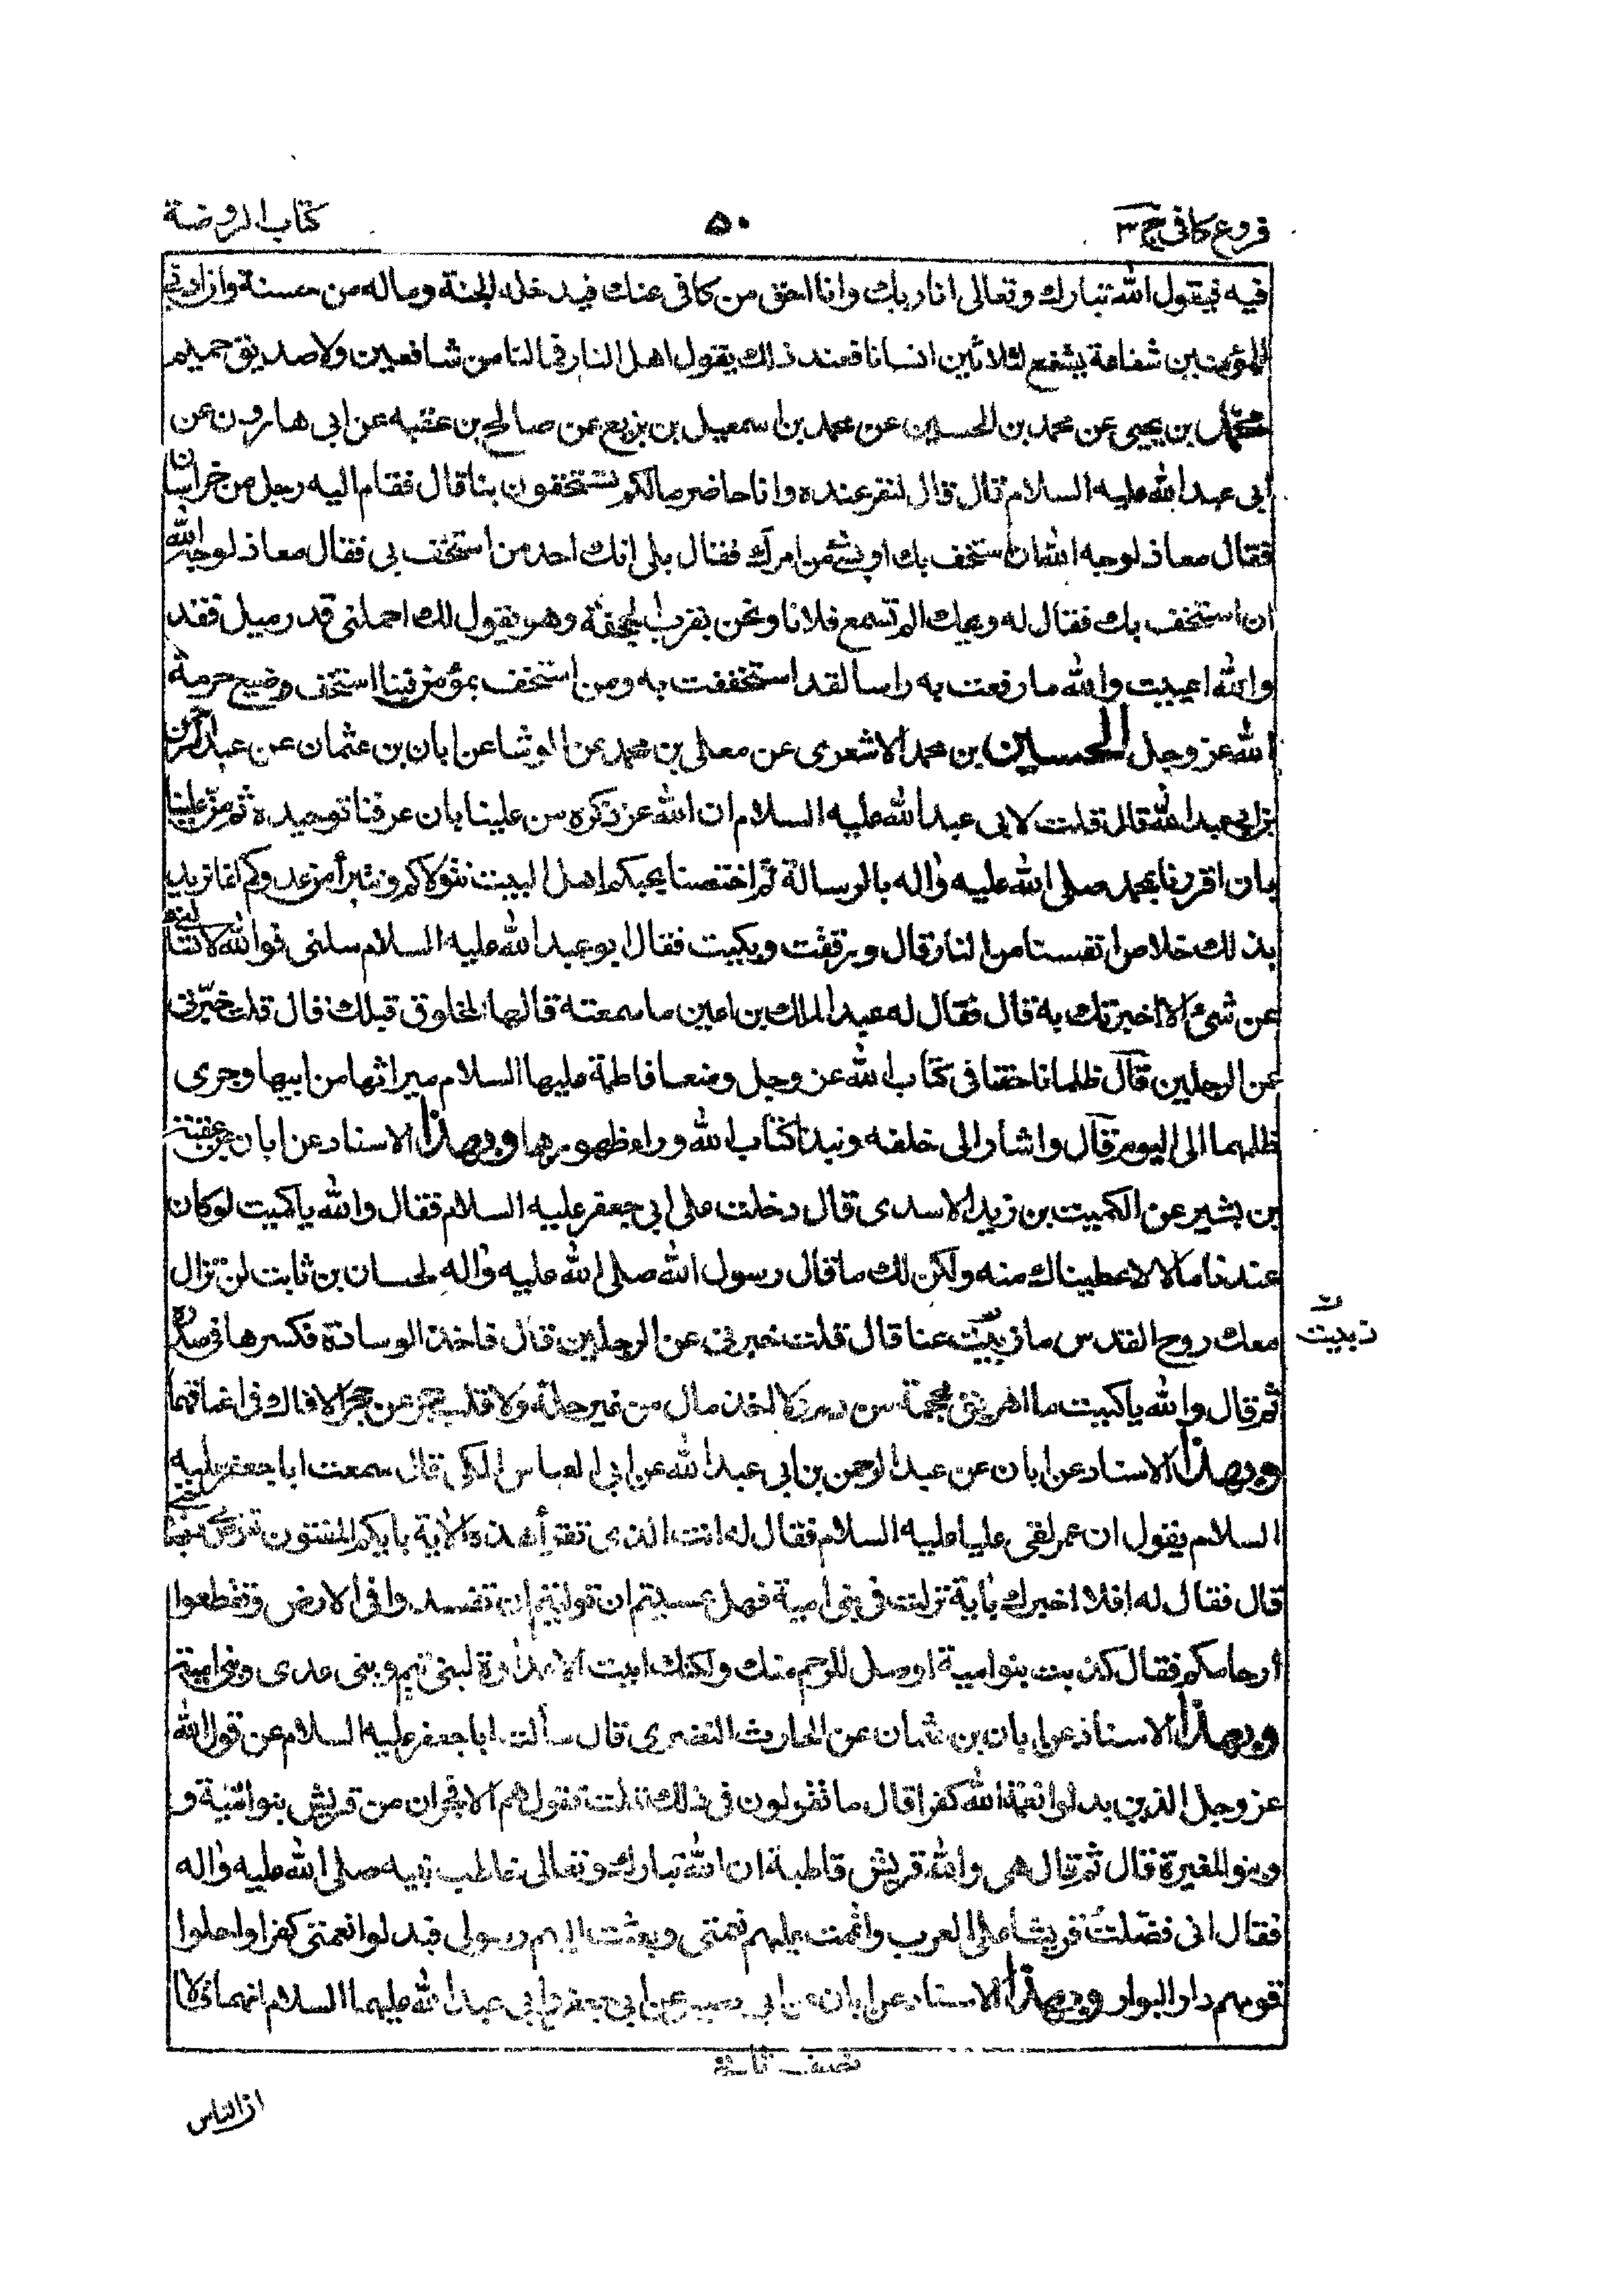 فروع كافى ج ٣
٥٠
كتاب الروضة
فيه فيقول الله تبارك وتعالى انا ربك وانا احق من كافى عنك فيدخله الجنة وماله من حسنة وان ادنى
المؤمنين شفاعة يشفع لثلاثين انسانا فعند ذلك يقول اهل النار فما لنا من شافعين ولا صديق حميم
محمد بن يحيى عن محمد بن الحسين عن محمد بن اسمعيل بن بزيع عن صالح بن عقبه عن ابى هارون عن
ابى عبد الله عليه السلام قال قال لنفر عنده وانا حاضر مالكم تستخفون بنا قال فقام اليه رجل من خراسان
فقال معاذ لوجه الله ان استخف بك او بشئ من امرك فقال بلى انك احد من استخف بى فقال معاذ لوجه الله
ان استخف بك فقال له ويحك الم تسمع فلانا ونحن بقرب الجحفة وهو يقول لك احملنى قدر ميل فقد
والله اعييت والله ما رفعت به راسا لقد استخففت به ومن استخف بمؤمن فبنا استخف وضيع حرمة
الله عز وجل الحسين بن محمد الاشعرى عن معلى بن محمد عن الوشا عن ابان بن عثمان عن عبد الرحمن
بن ابى عبد الله قال قلت لابى عبد الله عليه السلام ان الله عز ذكره من علينا بان عرفنا توحيده ثم من علينا
بان اقررنا بمحمد صلى الله عليه واله بالرسالة ثم اختصنا بحبكم اهل البيت نتولاكم ونتبرأ من عدوكم انما نريد
بذلك خلاص انفسنا من النار قال ورققت وبكيت فقال ابو عبد الله عليه السلام سلنى فوالله لا تسألنى
عن شئ الا اخبرتك به قال فقال له عبد الملك بن اعين ما سمعته قالها لمخلوق قبلك قال قلت خبرنى
عن الرجلين قال ظلمانا حقنا فى كتاب الله عز وجل ومنعا فاطمة عليها السلام ميراثها من ابيها وجرى
ظلمهما الى اليوم قال واشار الى خلفه ونبذا كتاب الله وراء ظهورهما وبهذا الاسناد عن ابان عن عقبة
بن بشير عن الكميت بن زيد الاسدى قال دخلت على ابى جعفر عليه السلام فقال والله يا كميت لو كان
عندنا مال لاعطيناك منه ولكن لك ما قال رسول الله صلى الله عليه واله لحسان بن ثابت لن تزال
معك روح القدس ما ذببت عنا قال قلت خبرنى عن الرجلين قال فاخذ الوسادة فكسرها فى صدره
ذبيت
ثم قال والله يا كميت ما اهريق محجمة من دم ولا اخذ مال من غير حله ولا قلب حجر عن حجر الا ذاك فى اعناقهما
وبهذا الاسناد عن ابان عن عبد الرحمن بن ابى عبد الله عن ابى العباس المكى قال سمعت ابا جعفر عليه
السلام يقول ان عمر لقى عليا عليه السلام فقال له انت الذى تقرأ هذه الاية بايكم المفتون
قال فقال له افلا اخبرك باية نزلت فى بنى امية فهل عسيتم ان توليتم ان تفسدوا فى الارض وتقطعوا
أرحامكم فقال كذبت بنو امية اوصل للرحم منك ولكنك ابيت الا عداوة لبنى تيم وبنى عدى وبنى امية
وبهذا الاسناد عن ابان بن عثمان عن الحارث النضرى قال سألت ابا جعفر عليه السلام عن قول الله
عز وجل الذين بدلوا نعمة الله كفرا قال ما تقولون فى ذلك قلت نقول هم الافجران من قريش بنو امية و
وبنو المغيرة قال ثم قال هى والله قريش قاطبة ان الله تبارك وتعالى خاطب نبيه صلى الله عليه واله
فقال انى فضلت قريشا على العرب واتممت عليهم نعمتى وبعثت اليهم رسولى فبدلوا نعمتى كفرا واحلوا
قومهم دار البوار وبهذا الاسناد عن ابان عن ابى بصير عن ابى جعفر وابى عبد الله عليهما السلام انهما قالا
ان الناس